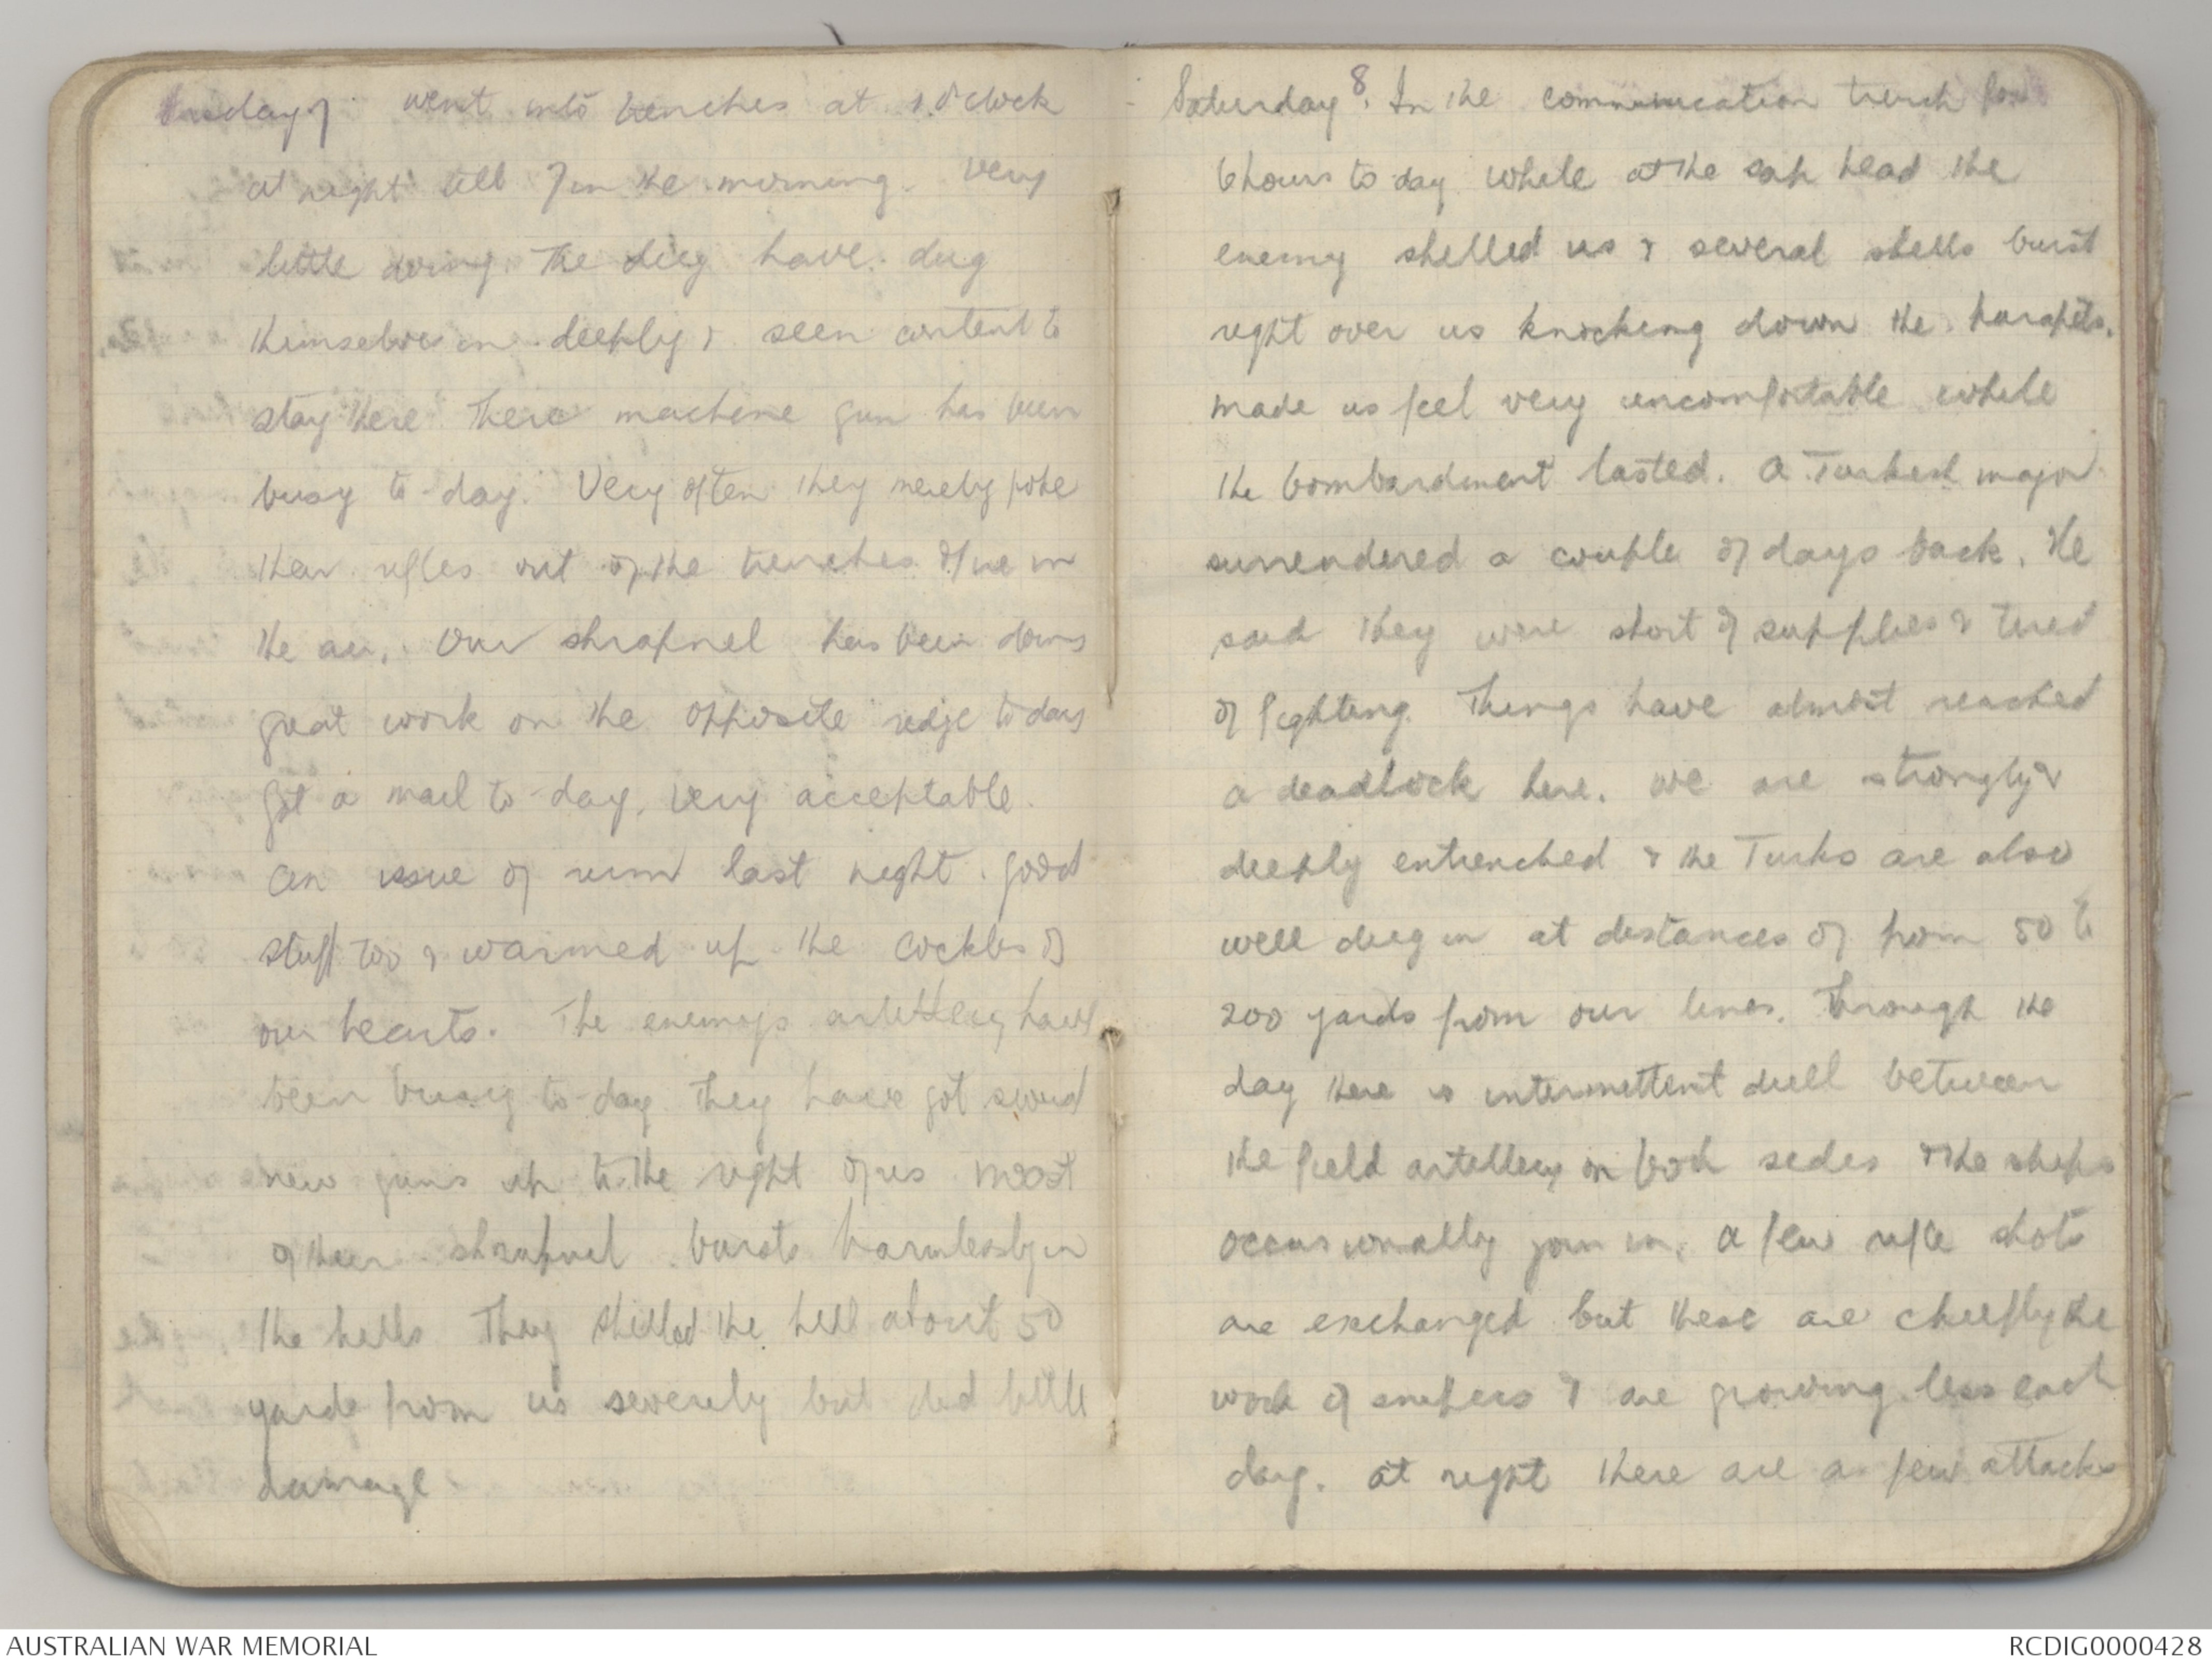 7. went into trenches at 1. O'clock
at night till 7 in the morning. Very
little doing. The have. dug
themselves in deeply & seem content to
stay there There machine gun has been
busy to-day. Very often they merely poke
their rifles out of the trenches & fire in
the air. Our shrapnel has been doing
great work on the opposite to day
got a mail to-day, very acceptable.
An issue of rum last night. good
stuff too & warmed up the cockles of
our hearts. The enemys artillery have
been busy to-day They have got several
new guns up to the right of us most
of their shrapnel bursts harmlessly in
the hills They shelled the hill about 50
yards from us severely but did little
damage.
Saturday 8. In the communication trench for
6 hours to day while at the sap head the
enemy shelled us & several shells burst
right over us knocking down the parapets.
made us feel very uncomfortable while
the bombardment lasted. A Turkish major
surrendered a couple of days back. He
said they were short of supplies & tired
of fighting. Things have almost reached
a deadlock here. We are strongly &
deeply entrenched & the Turks are also
well dug in at distances of from 50 to
200 yards from our lines. Through the
day there is intermittent duell between
the field artillery on both sides & the ships
occasionally join in. A few rifle shots
are exchanged but these are chiefly the
work of snipers & are growing less each
day. At night there are a few attacks
AUSTRALIAN WAR MEMORIAL
RCDIG0000428